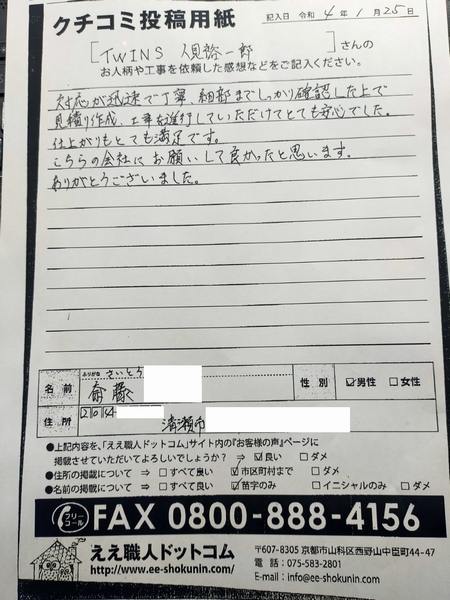 クチコミ投稿用紙
記入日 令和 4年 1月 25日
[TWINS 人見啓一郎]さんの
お人柄や工事を依頼した感想などをご記入ください。
対応が迅速で丁寧、細部までしっかり確認した上で
見積り作成、工事を進行していただけてとても安心でした。
仕上がりもとても満足です。
こちらの会社にお願いして良かったと思います。
ありがとうございました。
ふりがな さいとう
名前 斎藤 性別 ☑男性 □女性
住所 清瀬市
●上記内容を、「ええ職人ドットコム」サイト内の『お客様の声』ページに
掲載させていただいてよろしいでしょうか? ⇒ ☑良い □ダメ
●住所の掲載について ⇒ □すべて良い ☑市区町村まで □ダメ
●名前の掲載について ⇒ □すべて良い ☑苗字のみ □イニシャルのみ □ダメ
フリーコール FAX 0800-888-4156
ええ職人ドットコム
http://www.ee-shokunin.com/
〒607-8305 京都市山科区西野山中臣町44-47
電話:075-583-2801
E-mail:info@ee-shokunin.com